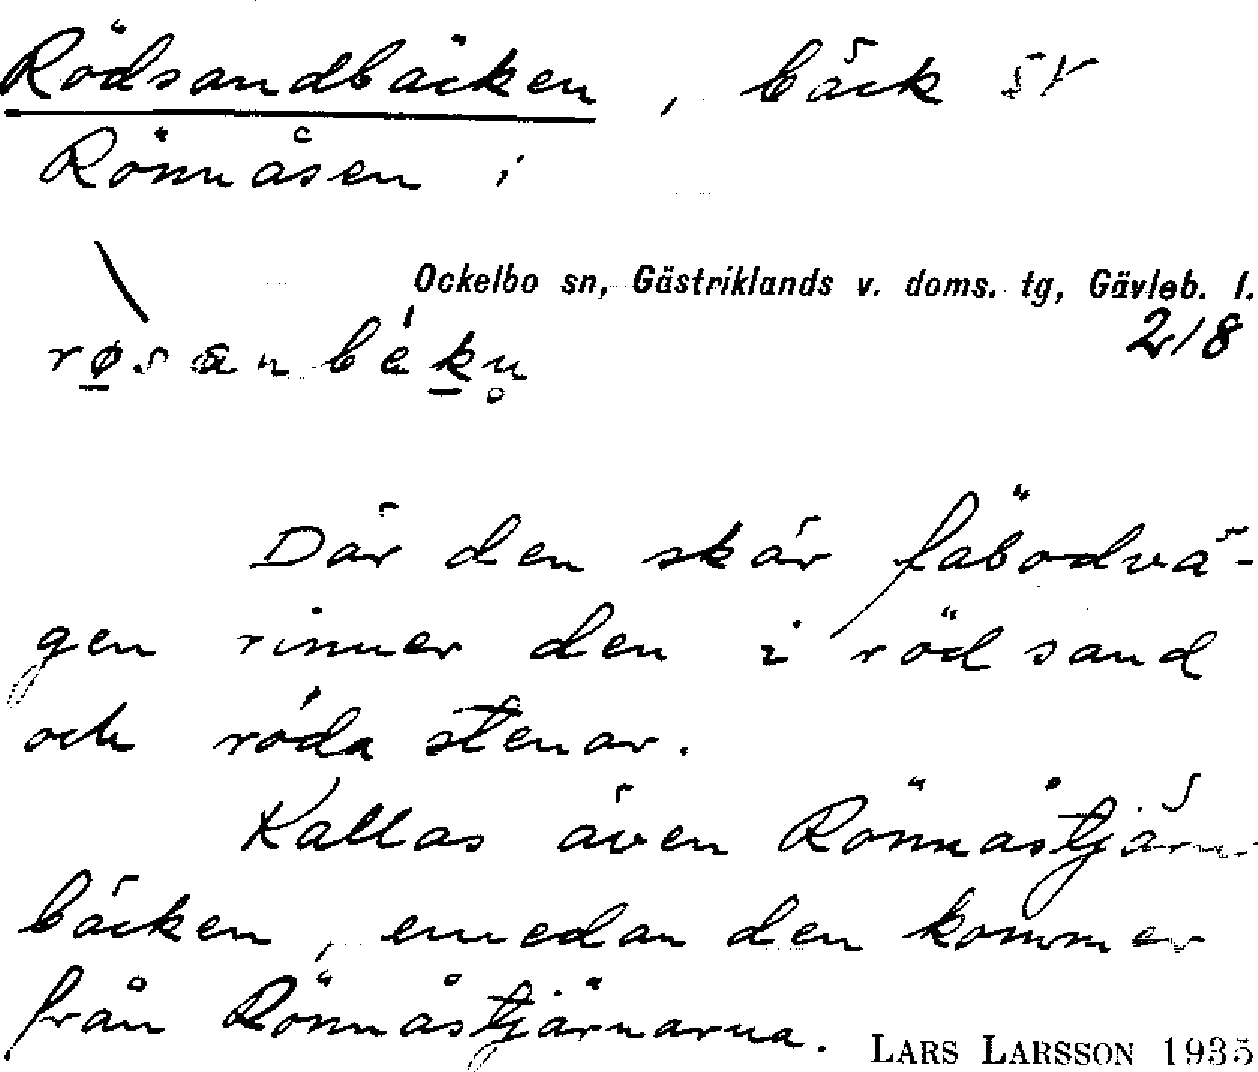 Rödsandbäcken, bäck SV
Rönnåsen i
Ockelbo sn, Gästriklands v. doms. tg, Gävleb. l.
218
Där den skär fäbodvä-
gen rinner den i röd sand
och röda stenar.
Kallas även Rönnåstjärn-
bäcken, emedan den kommer
från Rönnåstjärnarna.
LARS LARSSON 1935